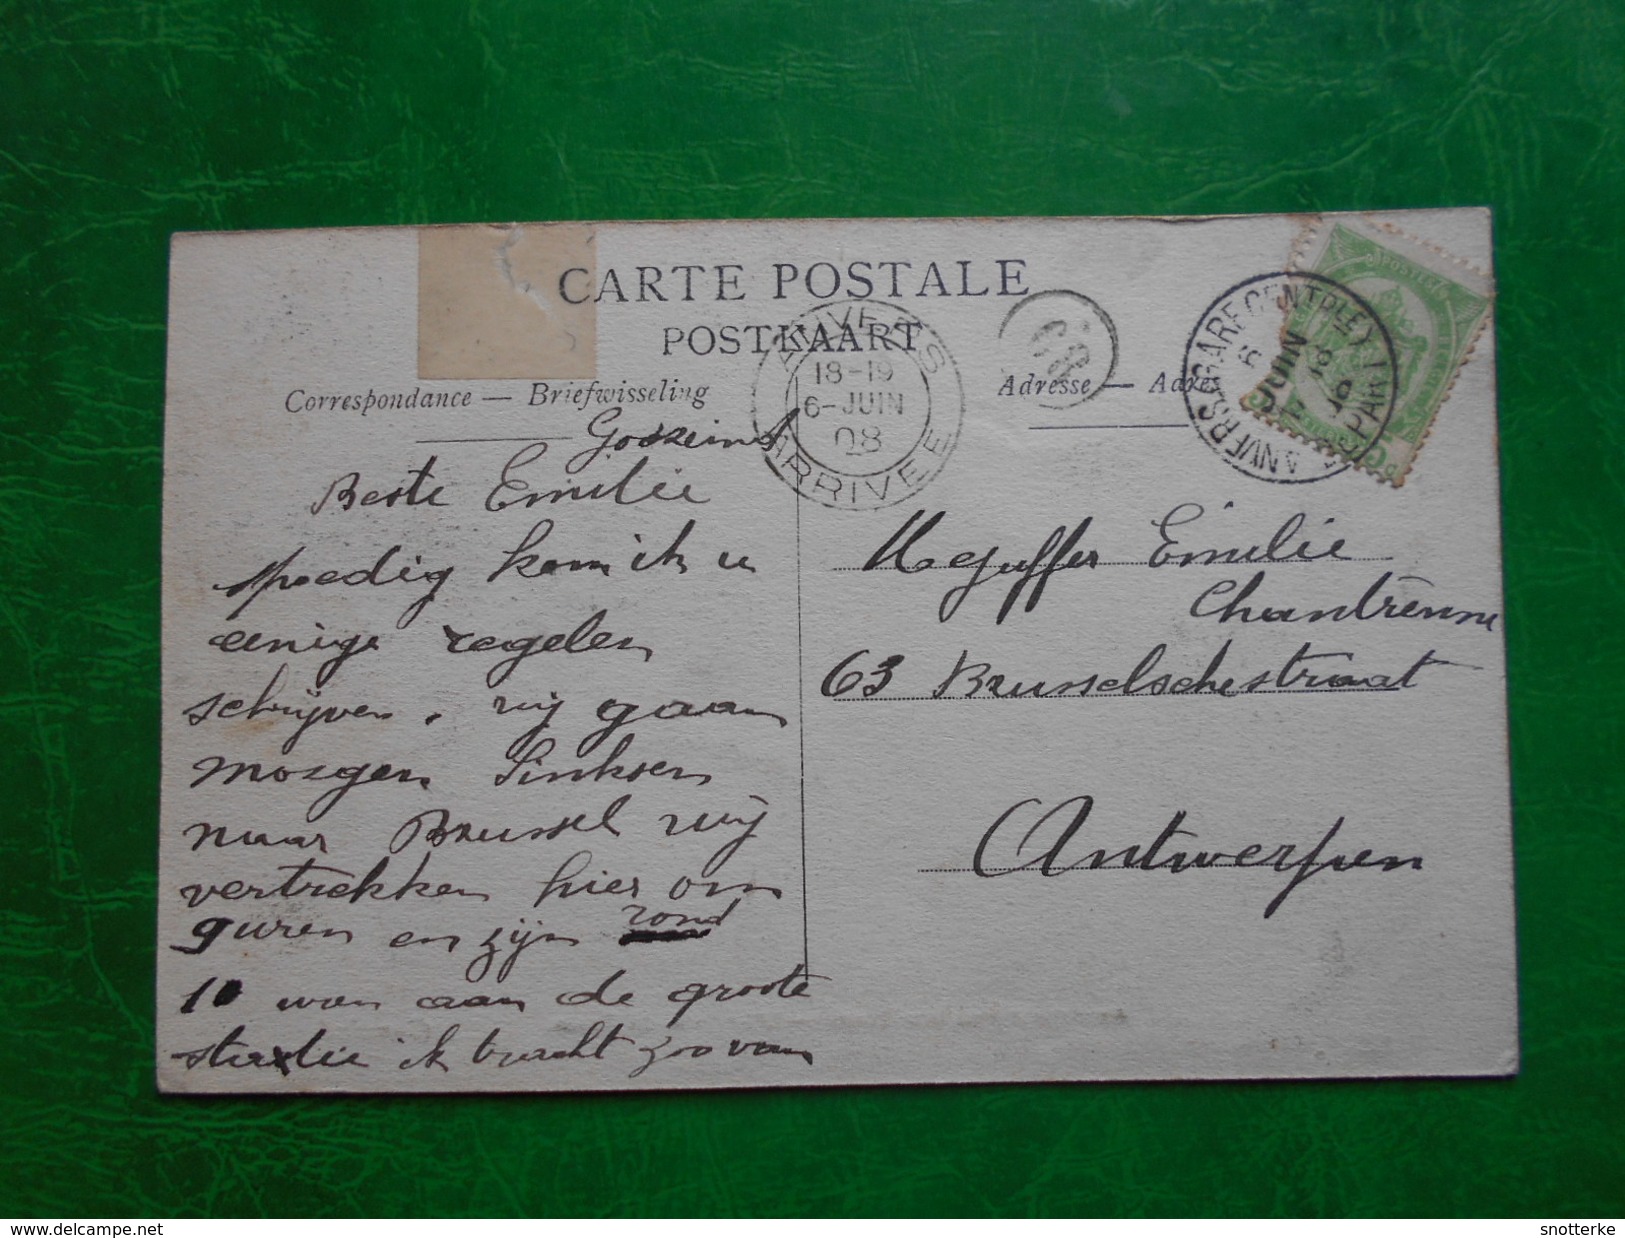 CARTE POSTALE
POSTKAART
Correspondance — Briefwisseling
Adresse — Adres
ANVERS
18-19
6-JUIN
08
ARRIVEE
ANVERS (GARE CENTRALE)
JUIN
Beste Emilie
spoedig kom ik u
eenige regelen
schrijven. wij gaan
morgen Sinksen
naar Brussel wij
vertrekken hier om
9 uren en zijn rond
10 uren aan de groote
statie ik tracht zoo van
Mejuffer Emilie
Chantrenne
63 Brusselschestraat
Antwerpen
www.delcampe.net
snotterke